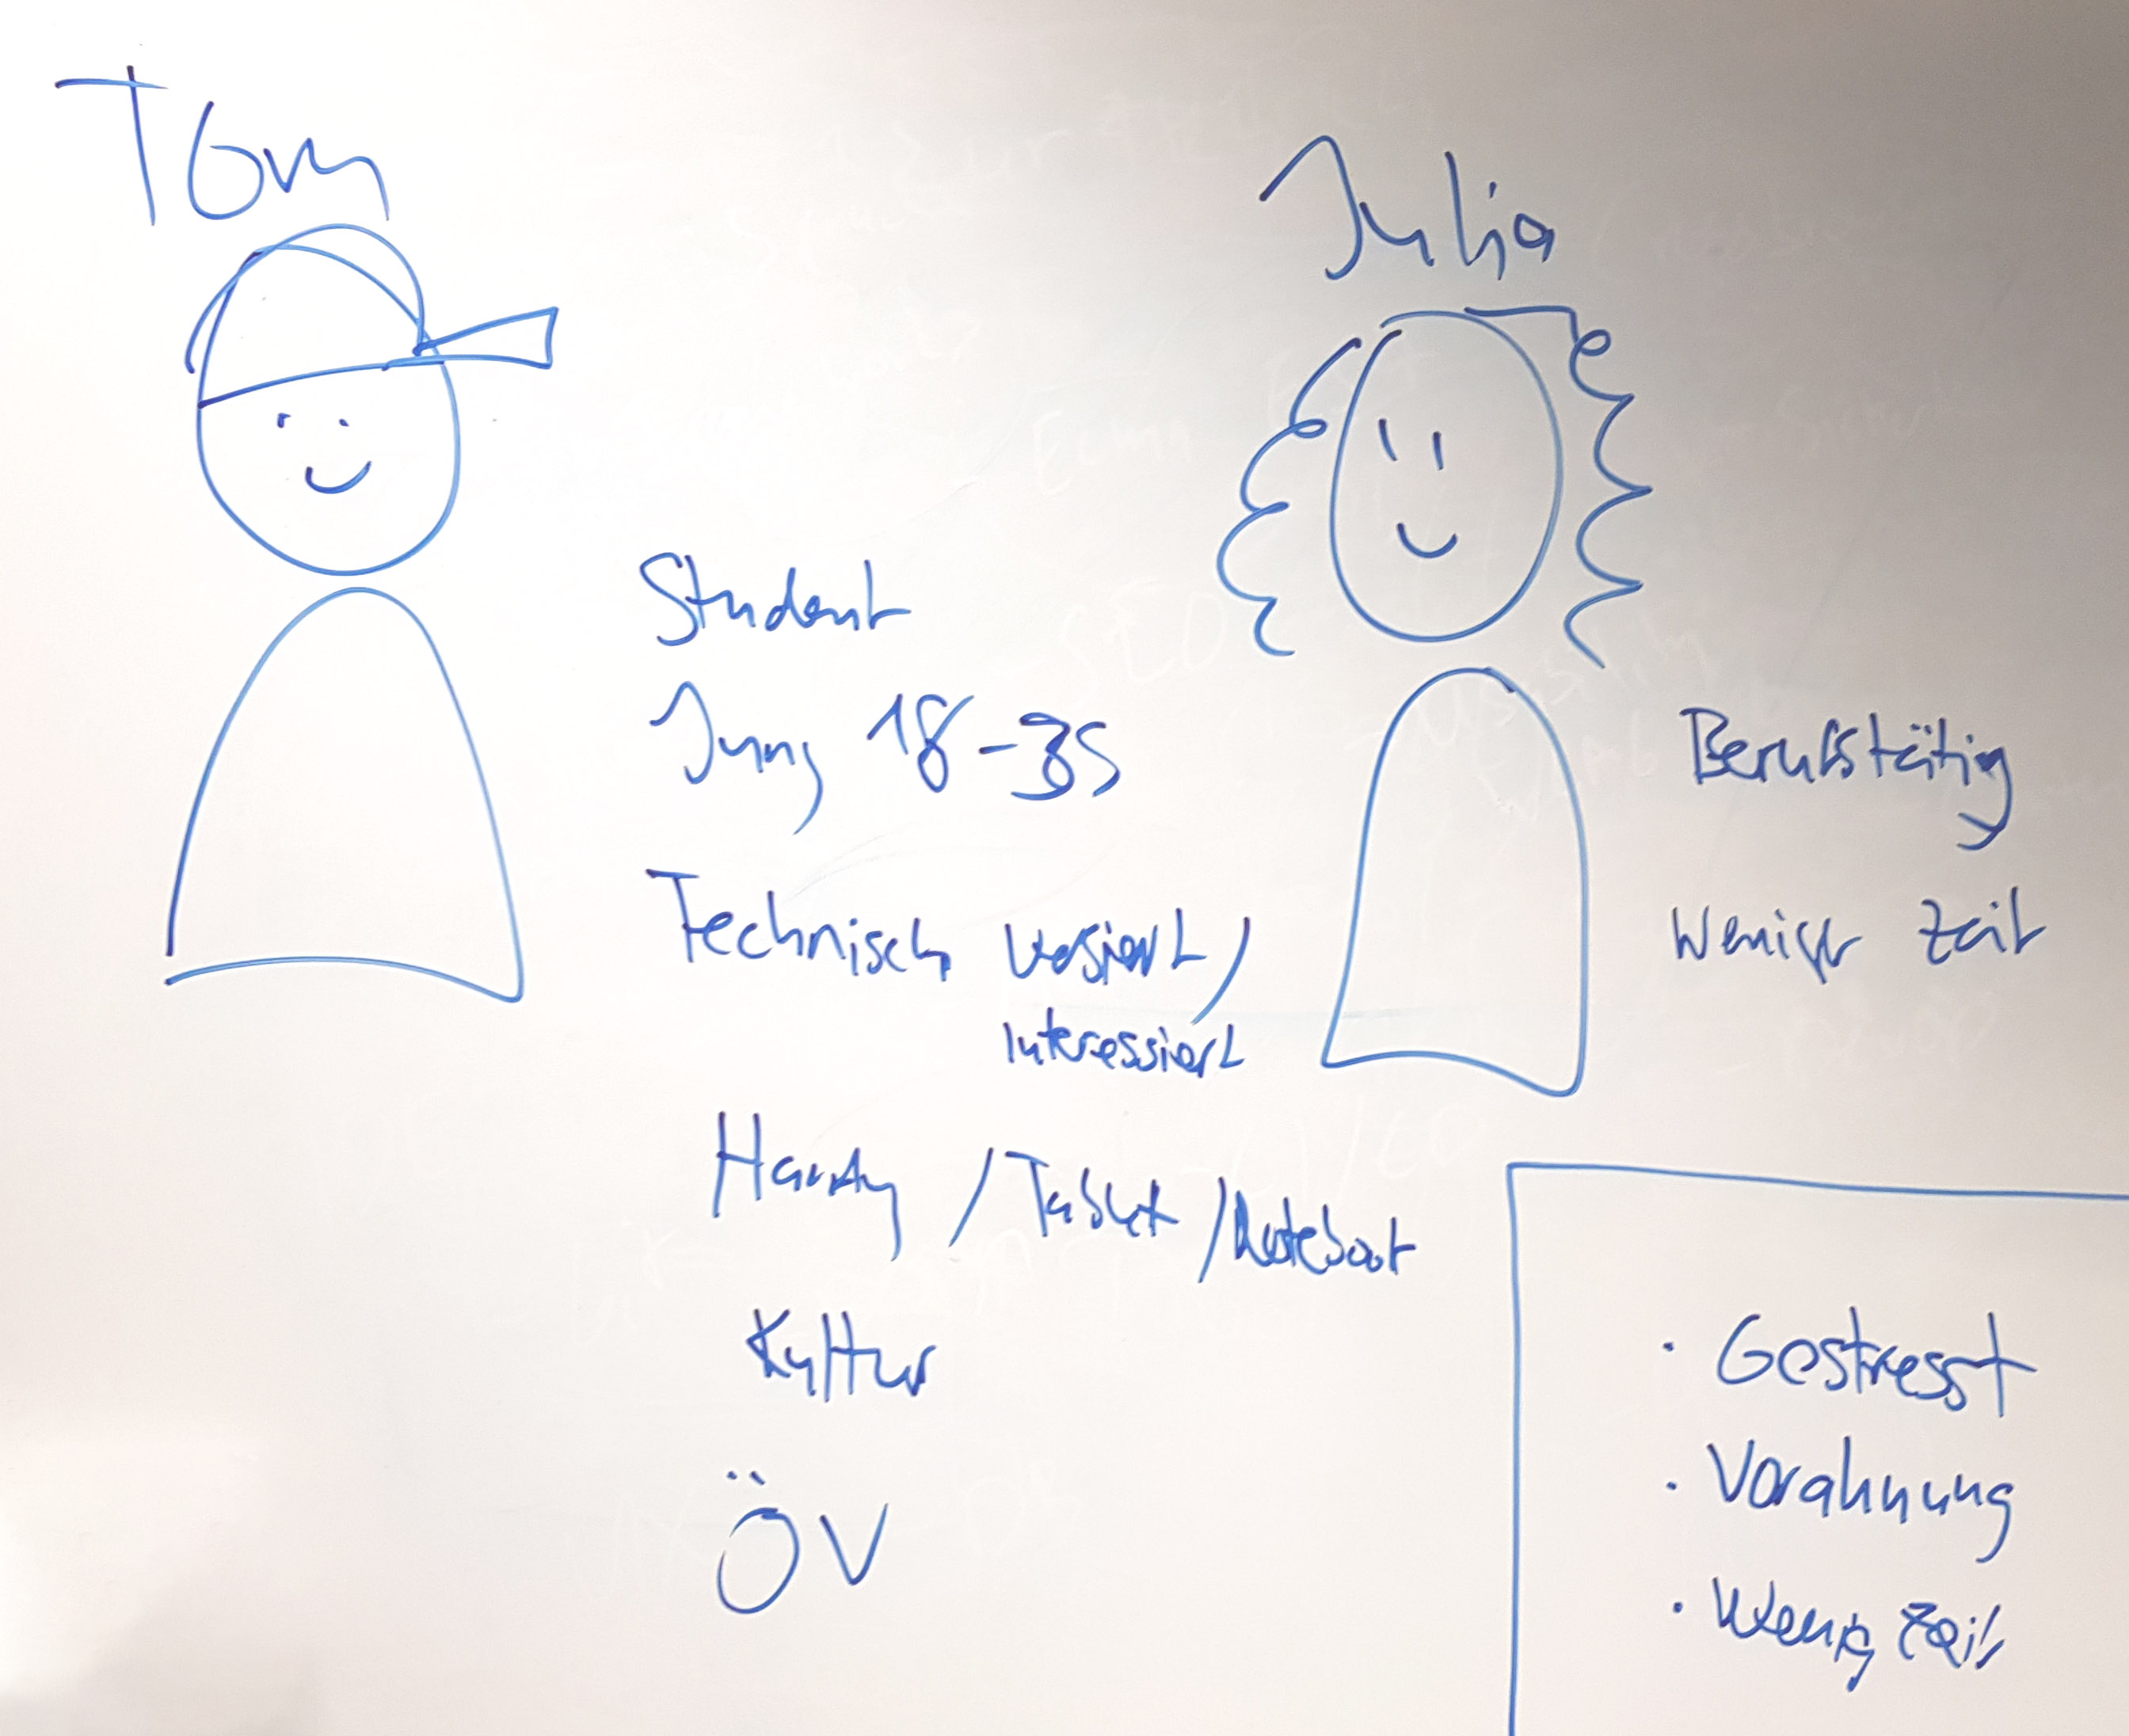 Tom
Student
Jung 18-35
Technisch versiert /
Interessiert
Handy / Tablet / Notebook
Kultur
ÖV
Julia
Berufstätig
Weniger Zeit
· Gestresst
· Vorahnung
· Wenig Zeit